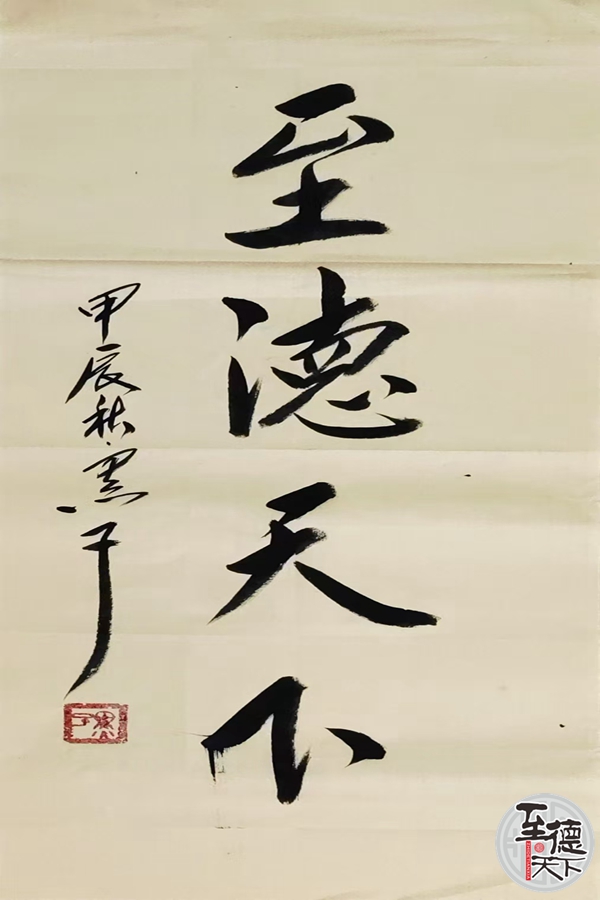 至德天下
甲辰秋黑子
黑子
至德天下